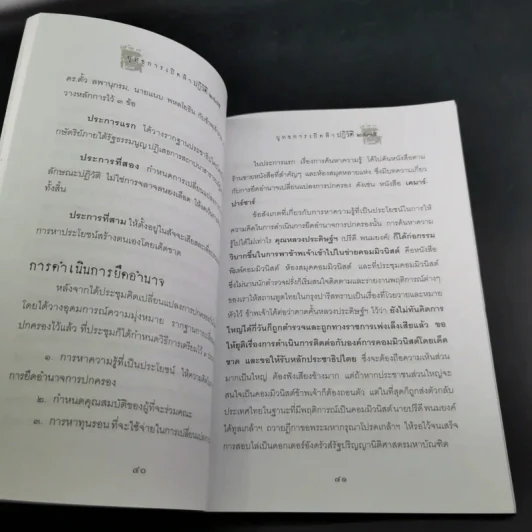 ยุทธการเปิดฟ้าปฏิวัติ ๒๔๗๕
ดร.ตั้ว ลพานุกรม, นายแนบ พหลโยธิน
วางหลักการไว้ ๓ ข้อ
ประการแรก ได้วางรากฐานประชาธิปไตย
กษัตริย์ภายใต้รัฐธรรมนูญ
ประการที่สอง กำหนดการเปลี่ยนแปลง
ลักษณะปฏิวัติ ไม่ใช่การจลาจลนองเลือด
ทั้งสิ้น
ประการที่สาม ให้ตั้งอยู่ในสัจจะเสียสละ
การหาประโยชน์สร้างตนเองโดยเด็ดขาด
การดำเนินการยึดอำนาจ
หลังจากได้ประชุมคิดเปลี่ยนแปลงการปกครอง
โดยได้วางอุดมการณ์ความมุ่งหมาย รากฐาน
ปกครองไว้แล้ว ที่ประชุมก็ได้กำหนดวิธีการเตรียมไว้
๑. การหาความรู้ที่เป็นประโยชน์ ให้ความคิด
การยึดอำนาจการปกครอง
๒. กำหนดคุณสมบัติของผู้ที่จะร่วมคณะ
๓. การหาทุนรอน ที่จะใช้จ่ายในการเปลี่ยนแปลง
๔๐
ยุทธการเปิดฟ้าปฏิวัติ ๒๔๗๕
ในประการแรก เรื่องการค้นหาความรู้ ได้ไปค้นหนังสือตาม
ร้านขายหนังสือที่สำคัญๆ และห้องสมุดหลายแห่ง ซึ่งมีบทความเกี่ยว
กับการยึดอำนาจเปลี่ยนแปลงการปกครอง ดังเช่น หนังสือ เคมาร์-
ปาร์ชาร์
ข้อสังเกตที่เกี่ยวกับการหาความรู้ที่เป็นประโยชน์ในการให้
ความคิดในการดำเนินการยึดอำนาจเปลี่ยนแปลงการปกครองนั้น การค้นหาความ
รู้ใช่ไม่เท่านั้น คุณหลวงประดิษฐ์ฯ (ปรีดี พนมยงค์) ก็ได้ก่อกรรม
วิบากขึ้นในการพาข้าพเจ้าเข้าไปในข่ายคอมมิวนิสต์ คือหนังสือ
พิมพ์คอมมิวนิสต์ ห้องสมุดคอมมิวนิสต์ และที่ประชุมคอมมิวนิสต์
ซึ่งไม่นานนักตำรวจฝรั่งก็เริ่มสนใจติดตามและรายงานพฤติการณ์ต่างๆ
ของเราให้สถานทูตไทยในกรุงปารีสทราบเป็นเรื่องที่โวยวายและหมาย
หัวไว้ ข้าพเจ้าได้ต่อว่าคาดคั้นหลวงประดิษฐ์ฯ ไว้ว่า ยังไม่ทันคิดการ
ใหญ่ได้กี่วันก็ถูกตำรวจและถูกทางราชการเพ่งเล็งเสียแล้ว ขอ
ให้ยุติเรื่องการดำเนินการติดต่อกับองค์การคอมมิวนิสต์โดยเด็ด
ขาด และขอให้รับหลักประชาธิปไตย ซึ่งจะต้องถือความเห็นส่วน
มากเป็นใหญ่ ต้องฟังเสียงข้างมาก แต่ถ้าหากประชาชนส่วนใหญ่จะ
สนใจเป็นคอมมิวนิสต์ข้าพเจ้าก็ต้องถอนตัว แต่ในที่สุดก็ถูกส่งตัวกลับ
ประเทศไทยในฐานะที่มีพฤติการณ์เป็นคอมมิวนิสต์ นายปรีดีพนมยงค์
ได้ทูลเกล้าฯ ถวายฎีกาขอพระมหากรุณาโปรดเกล้าฯ ให้รอไว้จนเสร็จ
การสอบไล่เป็นดอกเตอร์อังครัวส์รัฐปริญญานิติศาสตรมหาบัณฑิต
๔๑